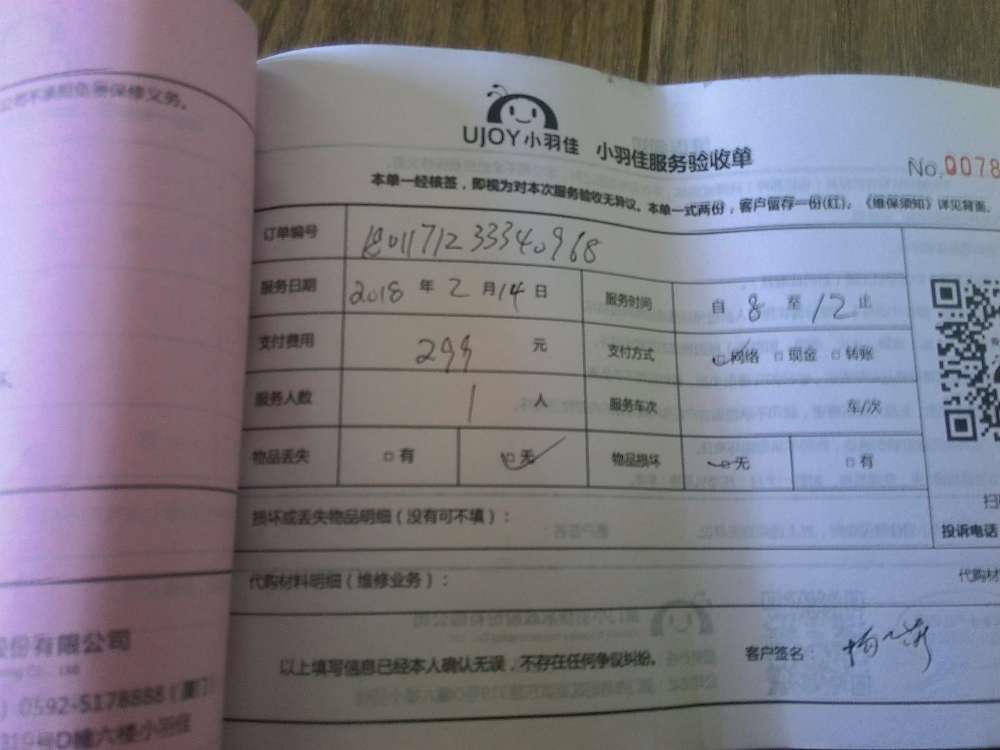 公司不承担免费保修义务。
份有限公司
0592-5178888（厦门
319号D幢六楼小羽佳
UJOY小羽佳 小羽佳服务验收单
No.0078
本单一经核签，即视为对本次服务验收无异议。本单一式两份，客户留存一份(红)。《维保须知》详见背面。
订单编号
服务日期 2018 年 2 月 14 日 服务时间 自 8 至 12 止
支付费用 299 元 支付方式 网络 现金 转账
服务人数 1 人 服务车次 车/次
物品丢失 有 无 物品损坏 无 有
损坏或丢失物品明细（没有可不填）：
扫
投诉电话
代购材料明细（维修业务）： 代购材
以上填写信息已经本人确认无误，不存在任何争议纠纷。 客户签名：